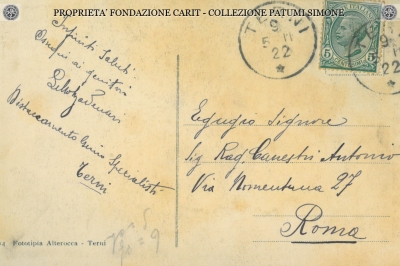 PROPRIETA' FONDAZIONE CARIT - COLLEZIONE PATUMI SIMONE
Infiniti Saluti
Ossequi ai genitori
Distaccamento Genio Specialisti
Terni
TERNI
9
5 11
22
5
5
9
22
Egregio Signore
Sig Rag. Canestri Antonio
Via Nomentana 27
Roma
Fototipia Alterocca - Terni